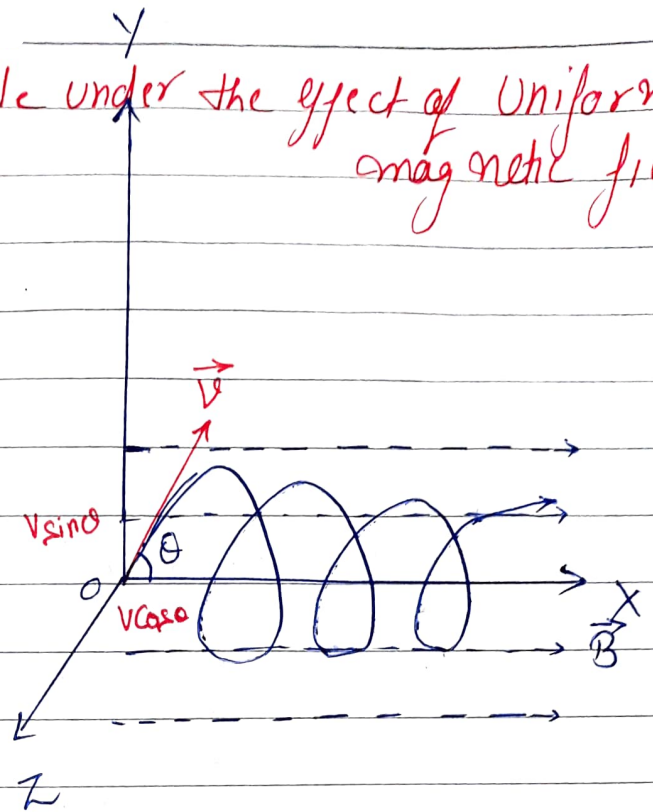 Y
le under the effect of Unifor
magnetic fi
V
Vsinθ
θ
O
VCosθ
X
B
Z